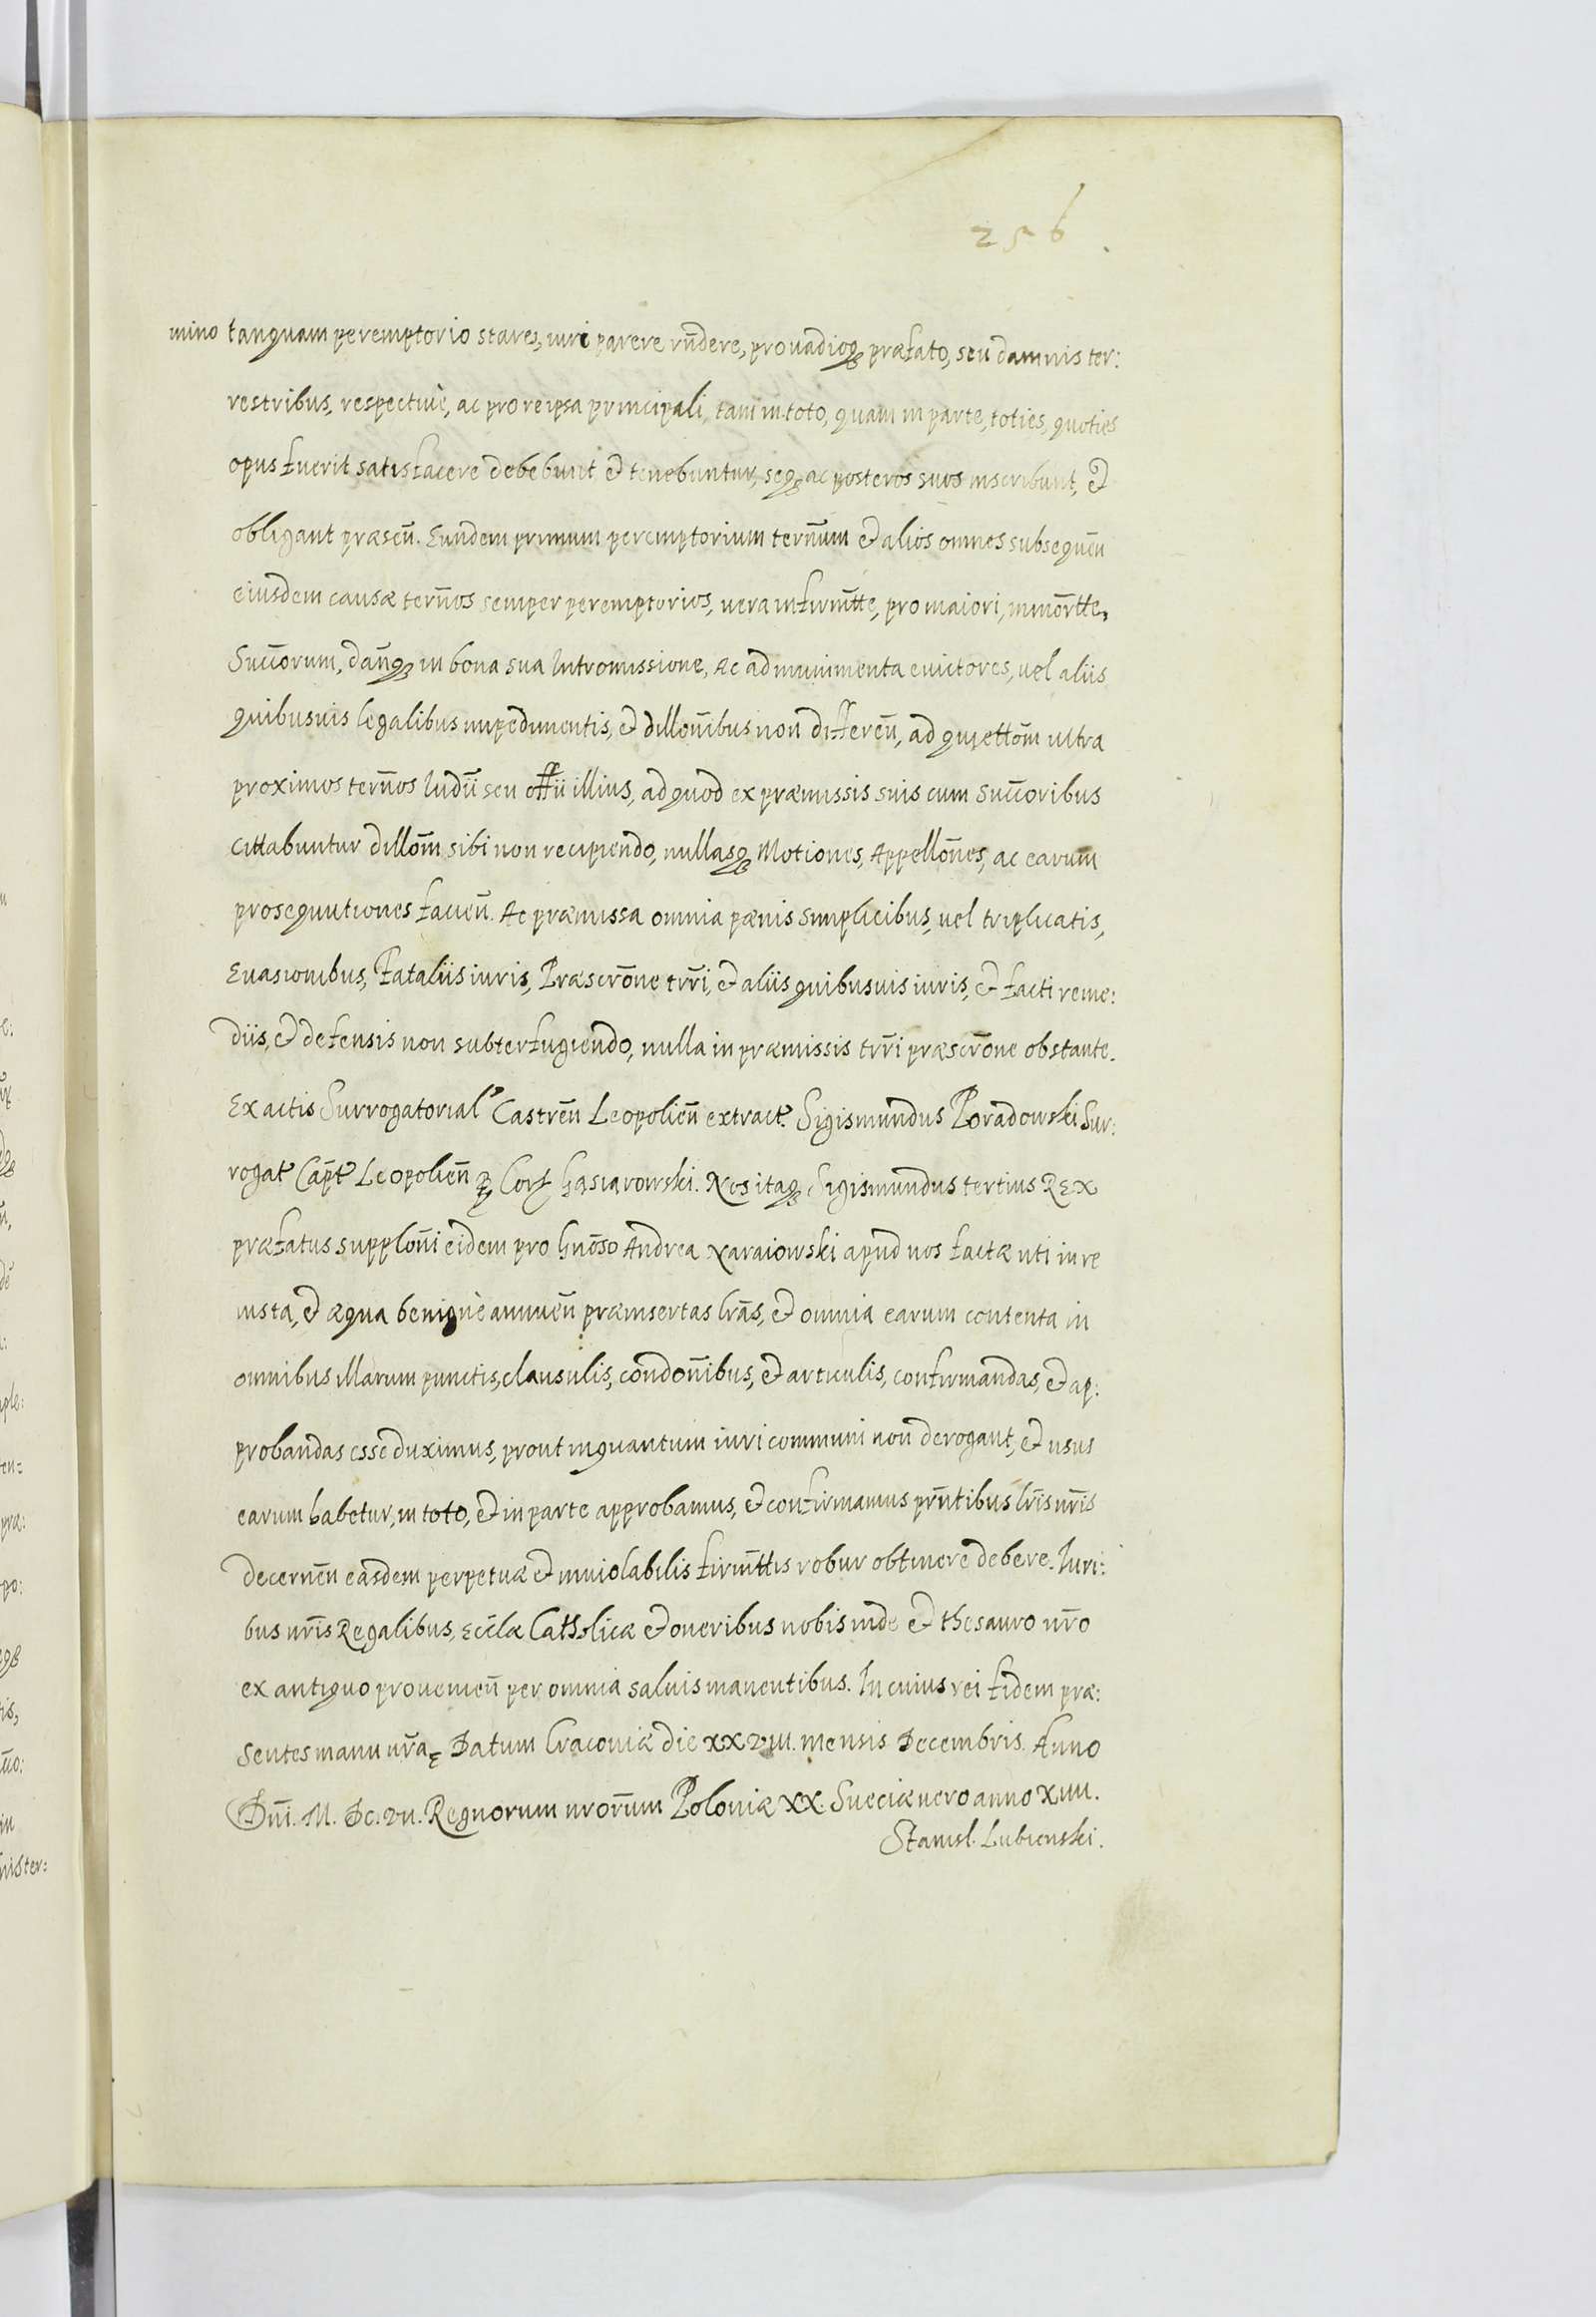 256.
mino tanquam peremptorio stare, iuri parere rñdere, pro uadioq3 præfato, seu damnis ter:
restribus, respectiuè, ac pro re ipsa principali, tam in toto, quam in parte, toties, quoties
opus fuerit satisfacere debebunt & tenebuntur, seq3 ac posteros suos inscribunt, &
obligant præseñ. Eundem primum peremptorium terñum & alios omnes subsequeñ
eiusdem causæ terños semper peremptorios, uera infirmtte, pro maiori, minortte,
Succorum, danq3 in bona sua Intromissione, Ac ad munimenta euictores, uel aliis
quibusuis legalibus impedimentis, & dilloñibus non differeñ, ad quiettom̃ ultra
proximos terños Iudii seu offii illius, ad quod ex præmissis suis cum succoribus
cittabuntur dillom̃ sibi non recipiendo, nullasq3 Motiones, Appelloñes, ac earum
prosequutiones facieñ. Ac præmissa omnia pænis simplicibus, uel triplicatis,
Euasionibus, Fataliis iuris, Præscrõne trri, & aliis quibusuis iuris, & facti reme:
diis, & defensis non subterfugiendo, nulla in præmissis trri præscrõne obstante.
Ex actis Surrogatorial Castreñ Leopolieñ extract. Sigismundus Poradowski Sur:
rogat Capt Leopolieñ Corr Gąsiarowski. Nos itaq3 Sigismundus tertius REX
præfatus supploñi eidem pro Gnõso Andrea Naraiowski apud nos factæ uti in re
iusta, & æqua benignè annueñ præinsertas lrãs, & omnia earum contenta in
omnibus illarum punctis, clausulis, condoñibus, & articulis, confirmandas, & ap:
probandas esse duximus, prout inquantum iuri communi non derogant, & usus
earum habetur, in toto, & in parte approbamus, & confirmamus prñtibus lrĩs nrĩs
decerneñ easdem perpetuæ & inuiolabilis firmttis robur obtinere debere. Iuri:
bus nrĩs Regalibus, Ecclæ Catholicæ & oneribus nobis inde & thesauro nrõ
ex antiquo prouenieñ per omnia saluis manentibus. In cuius rei fidem præ:
sentes manu nrã Datum Cracouiæ die XXVIII. mensis Decembris. Anno
Dñi. M. DC. VII. Regnorum nrorũm Poloniæ XX. Sueciæ uero anno XIIII.
Stanisl. Lubienski.